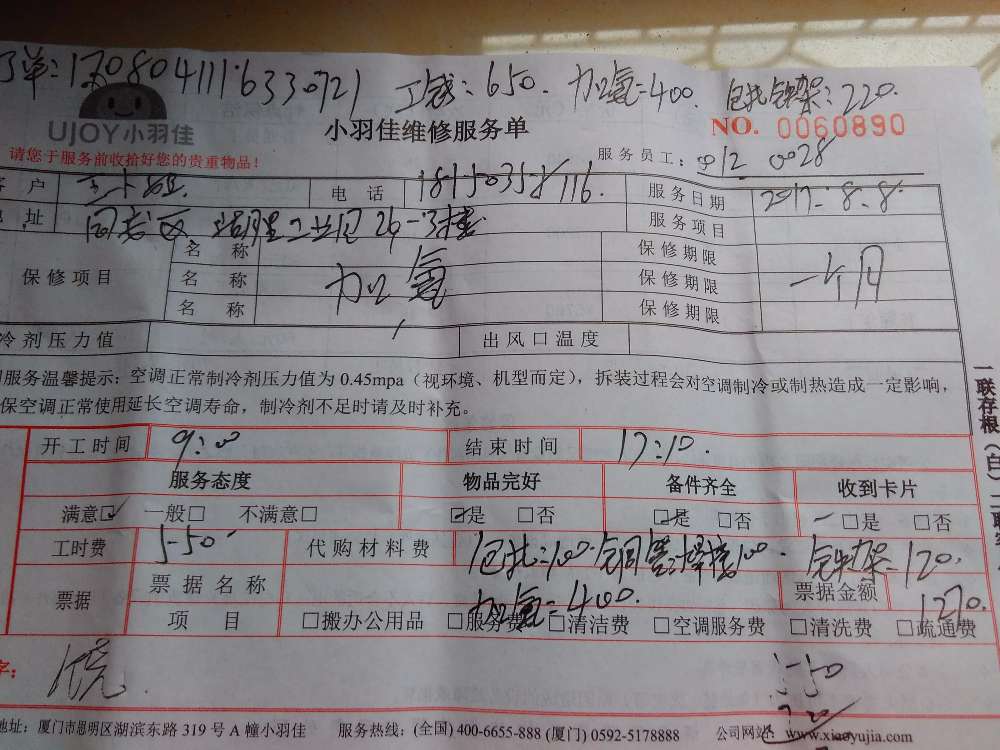 单:1708041116330721 工钱:650. 加氨=400. 包扎 铁架:220.
UJOY小羽佳 小羽佳维修服务单 NO. 0060890
请您于服务前收拾好您的贵重物品! 服务员工: 912 0028
户 王小姐 电话 服务日期 2017-8-8
址 同安区 26-3楼 服务项目
保修项目 名称 加氨 保修期限 一个月
名称 保修期限
名称 保修期限
冷剂压力值 出风口温度
服务温馨提示: 空调正常制冷剂压力值为 0.45mpa(视环境、机型而定),拆装过程会对空调制冷或制热造成一定影响,
保空调正常使用延长空调寿命,制冷剂不足时请及时补充。
开工时间 9:00 结束时间 17:10.
服务态度 物品完好 备件齐全 收到卡片
满意□ 一般□ 不满意□ □是 □否 □是 □否 □是 □否
工时费 550 代购材料费 包扎=100 铜管:焊接100. 铁架=120.
加氨=400.
票据 票据名称 票据金额 1270.
项目 □搬办公用品 □服务费 □清洁费 □空调服务费 □清洗费 □疏通费
字:
550
720
地址: 厦门市思明区湖滨东路 319 号 A 幢小羽佳 服务热线: (全国) 400-6655-888 (厦门) 0592-5178888 公司网站: www.xiaoyujia.com
一联存根(白)二联